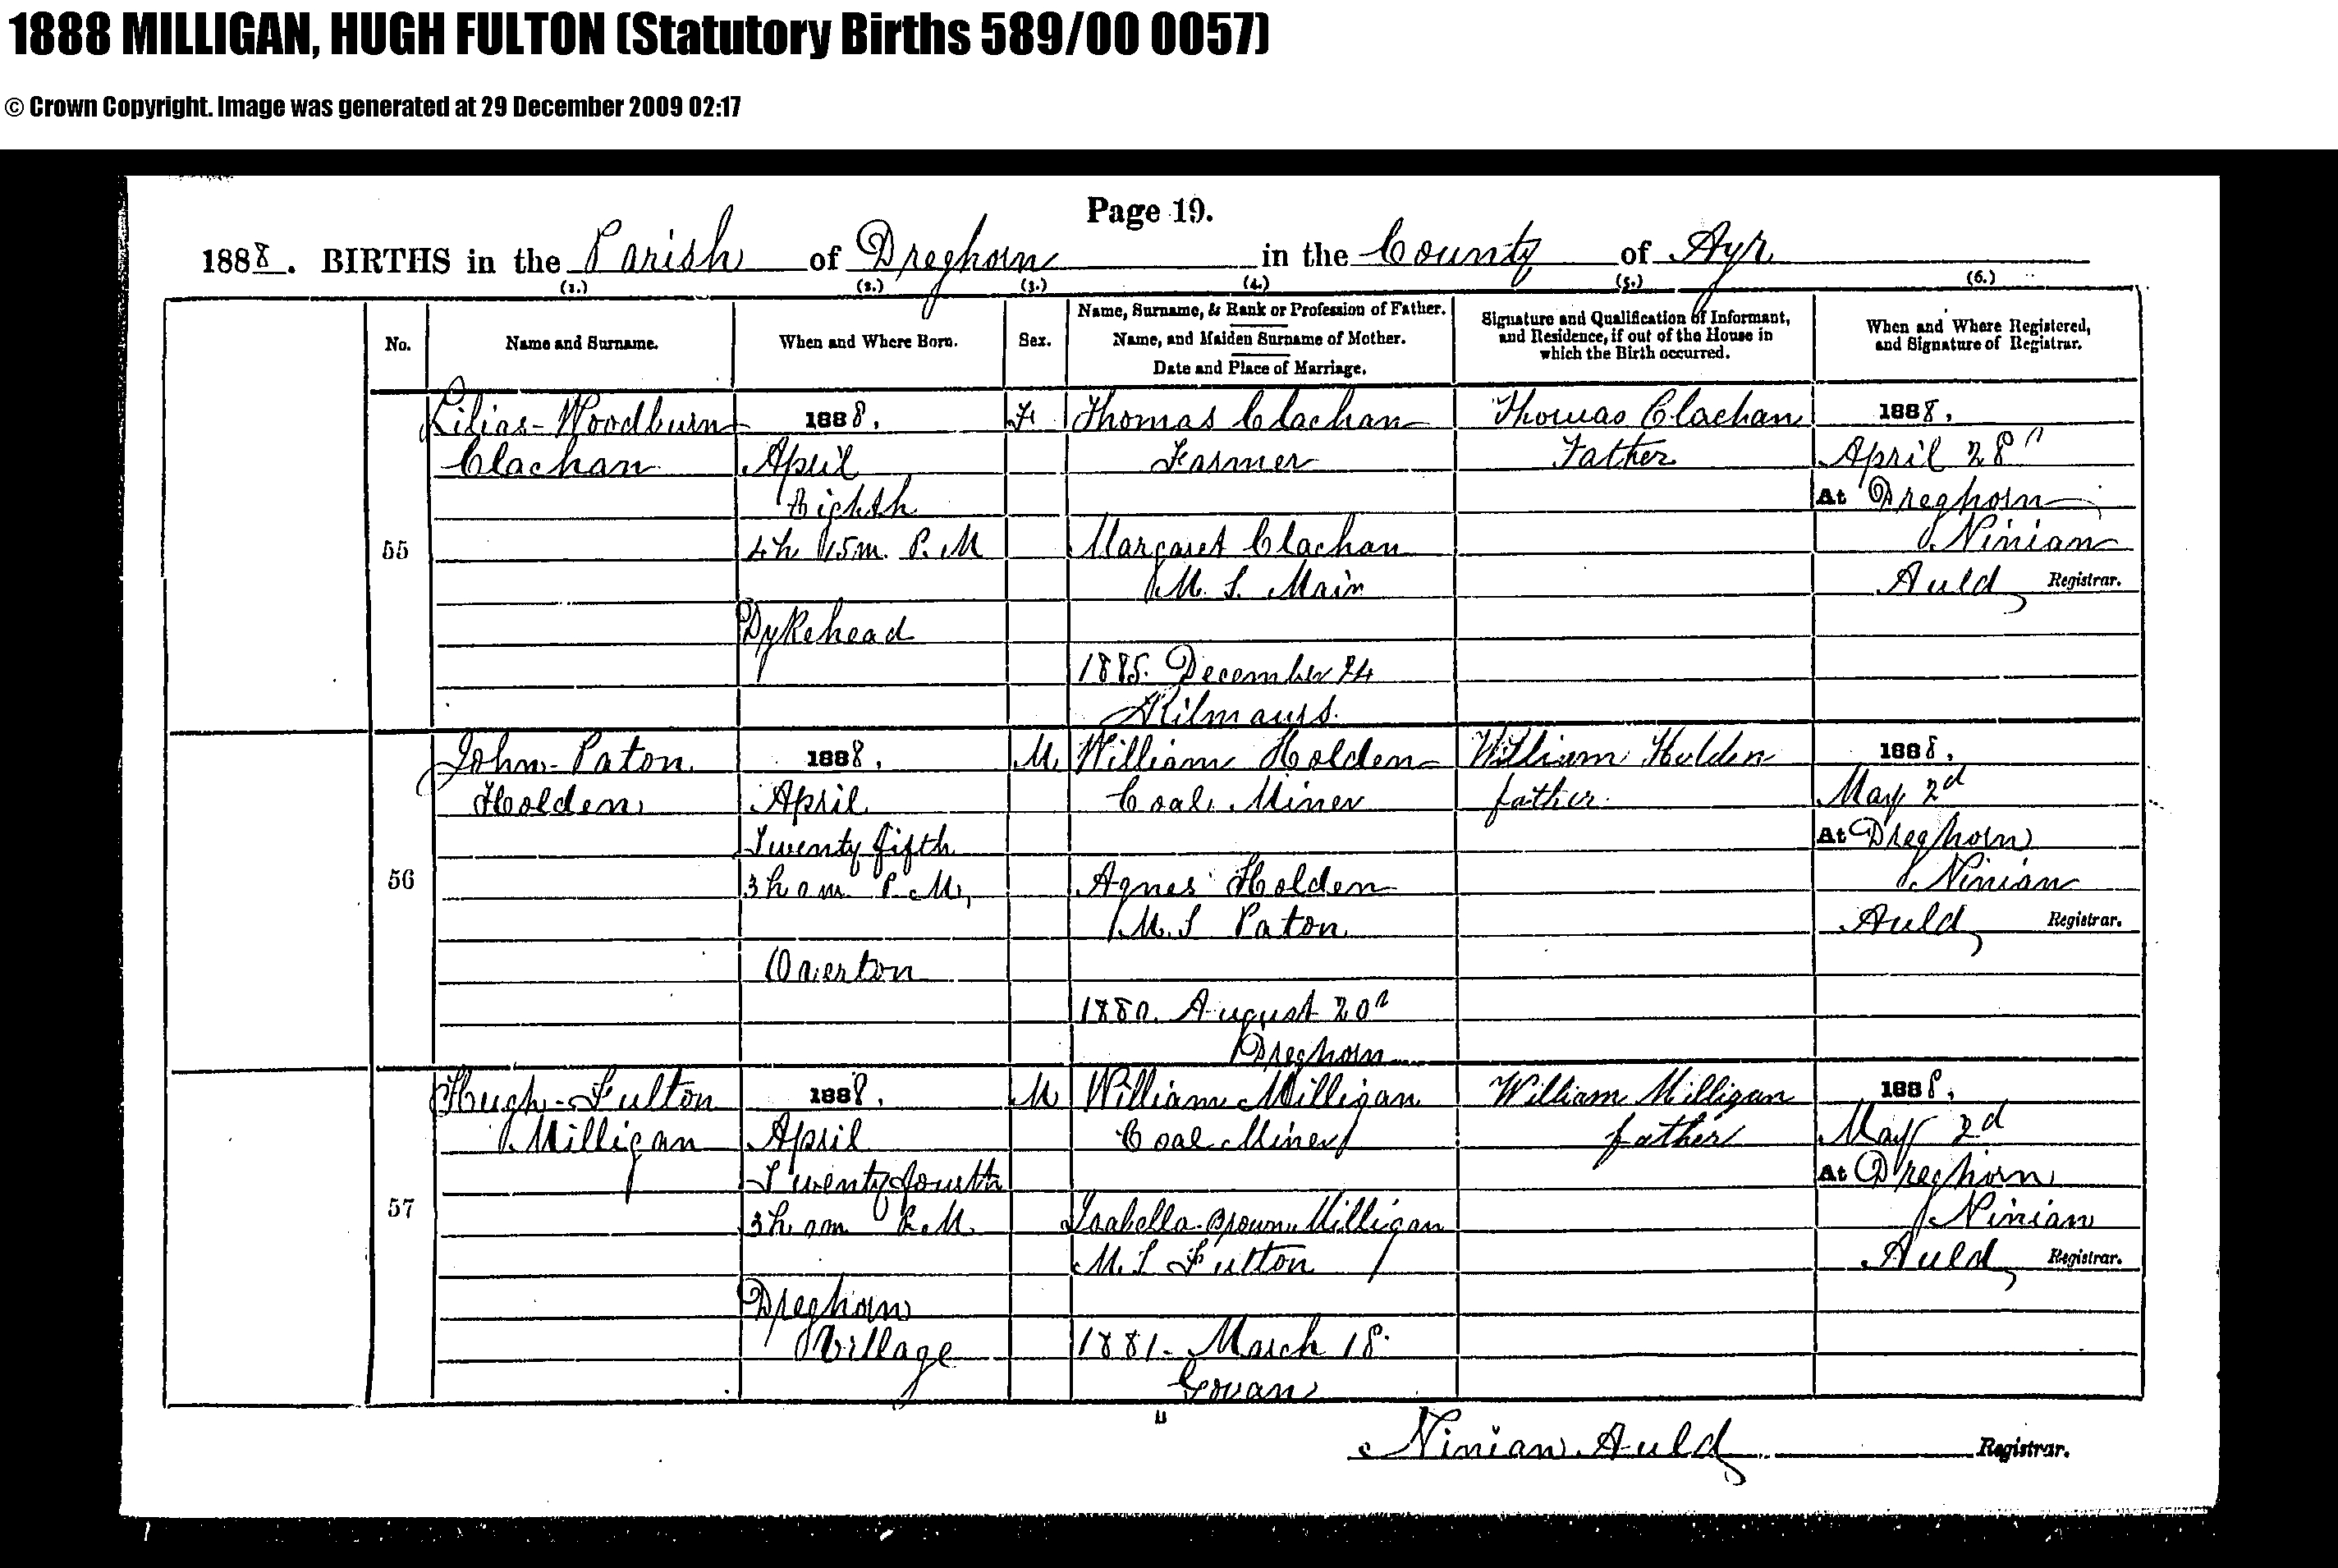 1888 MILLIGAN, HUGH FULTON (Statutory Births 589/00 0057)
© Crown Copyright. Image was generated at 29 December 2009 02:17
Page 19.
1888. BIRTHS in the Parish of Dreghorn in the County of Ayr
(1.) (2.) (3.) (4.) (5.) (6.)
No.
Name and Surname.
When and Where Born.
Sex.
Name, Surname, & Rank or Profession of Father.
Name, and Maiden Surname of Mother.
Date and Place of Marriage.
Signature and Qualification of Informant,
and Residence, if out of the House in
which the Birth occurred.
When and Where Registered,
and Signature of Registrar.
55
Lilias-Woodburn
Clachan
1888.
April
Eighth
4h 15m. P.M
Dykehead
F
Thomas Clachan
Farmer
Margaret Clachan
M.S. Main
1885. December 24
Kilmaurs.
Thomas Clachan
Father
1888.
April 28"
At Dreghorn
Ninian
Auld Registrar.
56
John-Paton
Holden
1888.
April
Twenty fifth
3h 0m P.M,
Overton
M
William Holden
Coal Miner
Agnes Holden
M.S Paton
1880. August 20"
Dreghorn
William Holden
father.
1888.
May 2d
At Dreghorn
Ninian
Auld Registrar.
57
Hugh-Fulton
Milligan
1888.
April
Twenty fourth
3h 0m P.M.
Dreghorn
Village
M
William Milligan
Coal Miner
Isabella-Brown Milligan
M.S Fulton
1881. March 18.
Govan
William Milligan
father
1888.
May 2d
At Dreghorn
Ninian
Auld Registrar.
Ninian Auld Registrar.